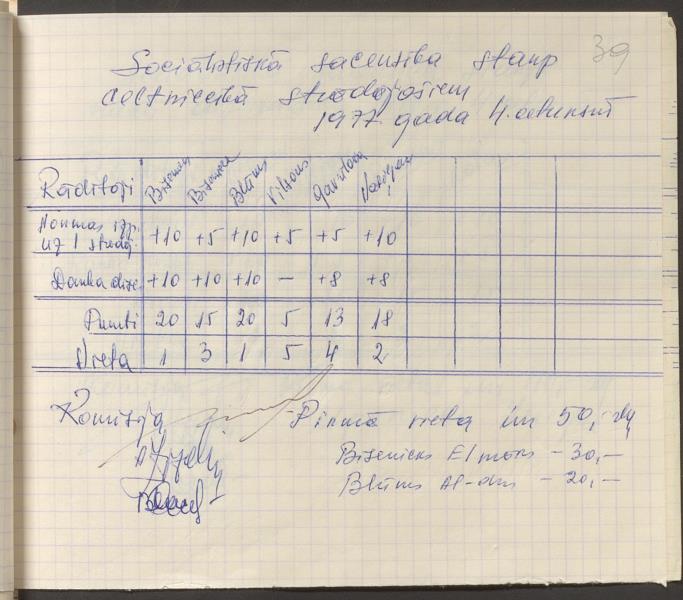 39
Sociālistiskā sacensība starp
celtniecībā strādājošiem
1977 gada 4. ceturksnī
Rādītāji Bisenieks Blūms Vilsons
Normas izp. uz 1 strād. +10 +5 +10 +5 +5 +10
Darba disc. +10 +10 +10 — +8 +8
Punkti 20 15 20 5 13 18
Vieta 1 3 1 5 4 2
Komisija Pirmā vieta un 50,-
Bisenieks Elmārs – 30,–
Blūms – 20,–